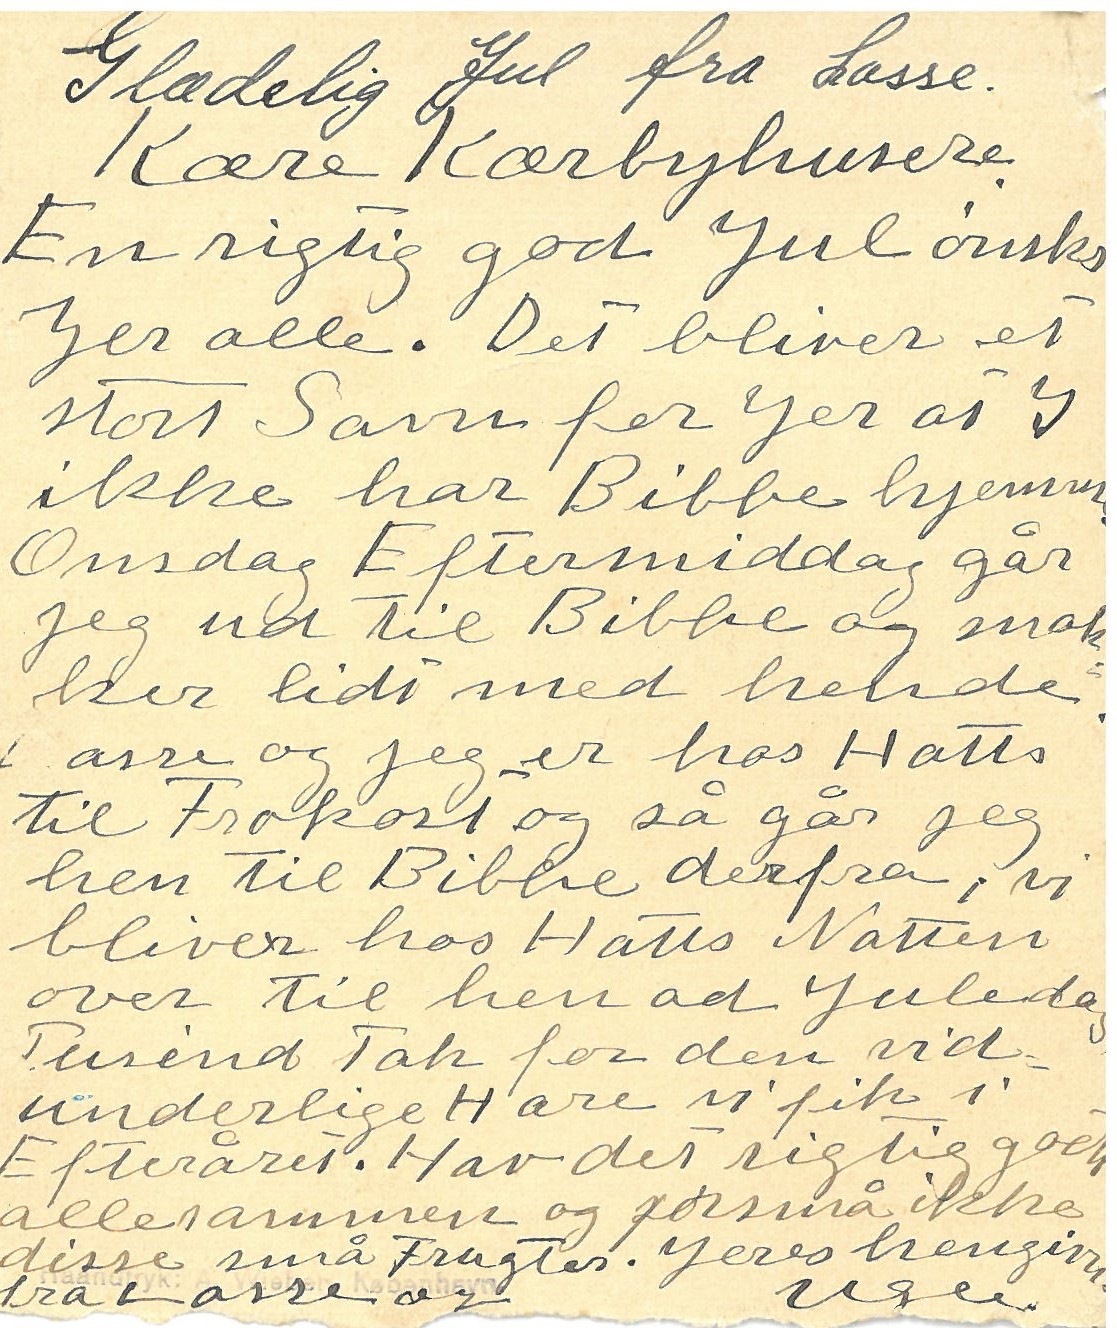 Glædelig Jul fra Lasse.
Kære Kærbyhusere.
En rigtig god Jul ønsks
Jer alle. Det bliver et
stort Savn for Jer at I
ikke har Bibbe hjemme
Onsdag Eftermiddag går
jeg ud til Bibbe og snak-
ker lidt med hende.
Lasse og jeg er hos Hatts
til Frokost og så går jeg
hen til Bibbe derfra, vi
bliver hos Hatts Natten
over til hen ad Juledag
Tusind Tak for den vid-
underlige Hare vi fik i
Efteråret. Hav det rigtig godt
allesammen og forsmå ikke
disse små Frugter. Jeres hengivn
Haandtryk: København
fra Lasse og